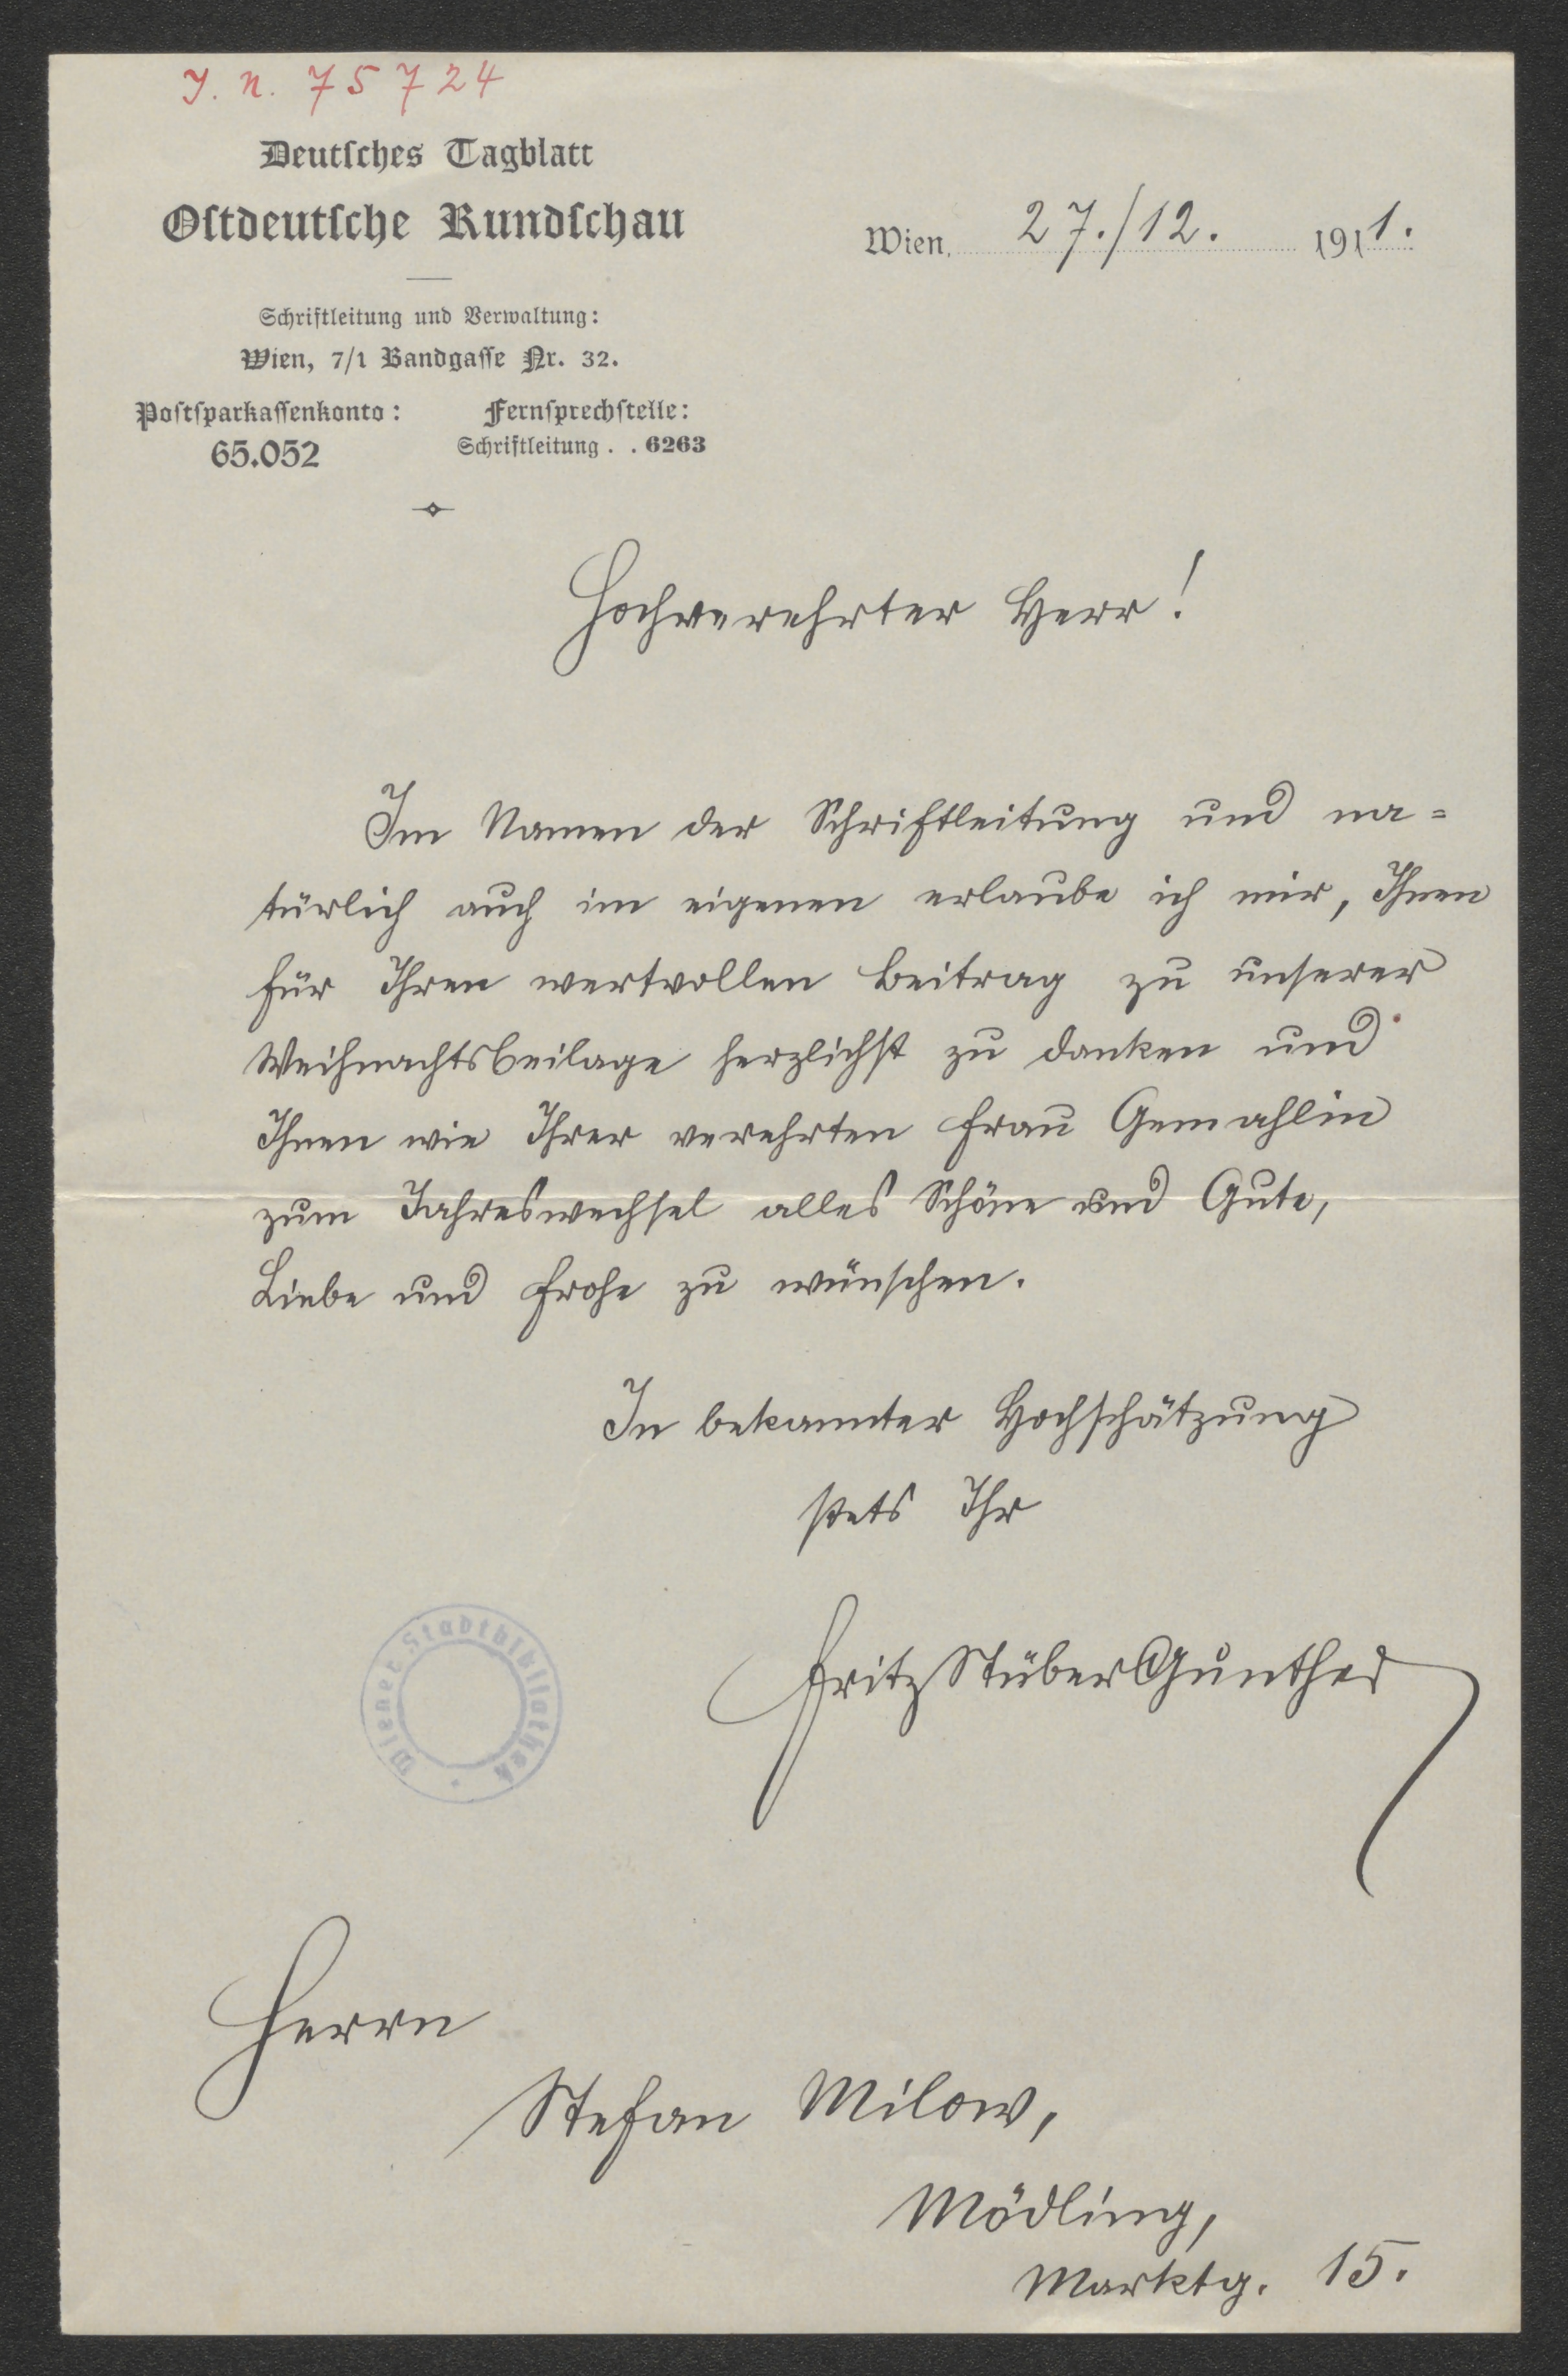 J. N. 75724
Deutsches Tagblatt
Ostdeutsche Rundschau
Wien, 27./12. 1911.
Schriftleitung und Verwaltung:
Wien, 7/1 Bandgasse Nr. 32.
Postsparkassenkonto: Fernsprechstelle:
65.052 Schriftleitung . . 6263
Hochverehrter Herr!
Im Namen der Schriftleitung und na=
türlich auch im eigenen erlaube ich mir, Ihnen
für Ihren wertvollen Beitrag zu unserer
Weihnachtsbeilage herzlichst zu danken und
Ihnen wie Ihrer verehrten Frau Gemahlin
zum Jahreswechsel alles Schöne und Gute,
Liebe und Frohe zu wünschen.
In bekannter Hochschätzung
stets Ihr
Fritz Stüber Gunther
Wiener Stadtbibliothek
Herrn
Stefan Milow,
Mödling,
Marktg. 15.